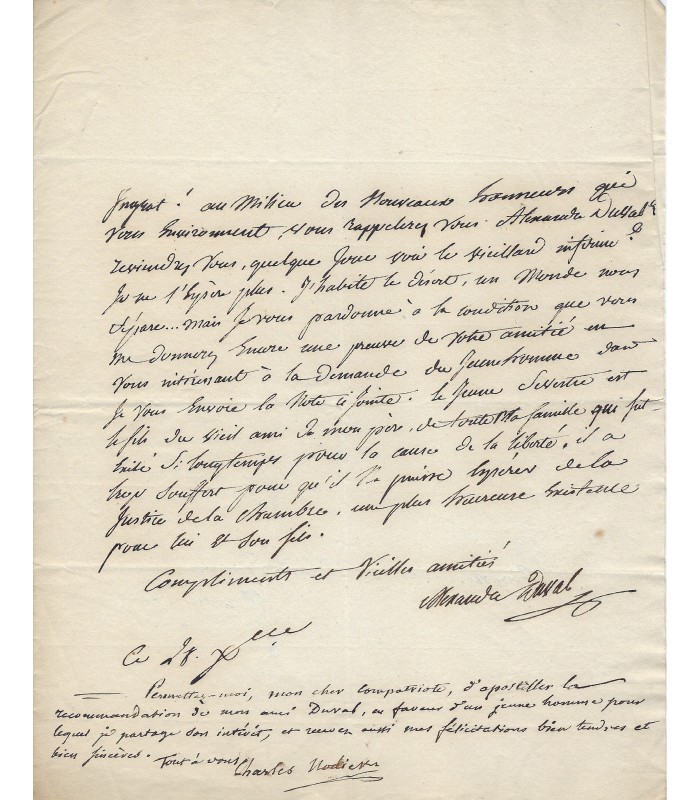 Ingrat ! au Milieu des Nouveaux honneurs qui
vous Environnent, vous rappelerez vous Alexandre Duval &
reviendrez vous, quelque Jour voir le vieillard infirme ?
Je ne l'Espère plus. J'habite le désert, un Monde nous
sépare... mais Je vous pardonne à la condition que vous
me donnerez Encore une preuve de votre amitié en
vous intéressant à la demande du Jeune homme dont
Je vous Envoie la Note ci Jointe. le Jeune Sevestre est
le fils du vieil ami de mon père, de toute Ma famille qui fut
Exilé Si longtemps pour la cause de la liberté. il a
trop Souffert pour qu'il Ne puisse Espérer de la
Justice de la Chambre, une plus heureuse Existence
pour lui Et Son fils.
Compliments et Vieilles amitiés
Alexandre Duval
Ce 28. Xbre
Permettez-moi, mon cher Compatriote, d'apostiller la
recommandation de mon ami Duval, en faveur d'un jeune homme pour
lequel je partage son intérêt, et recevez aussi mes félicitations bien tendres et
bien sincères. Tout à vous
Charles Nodier